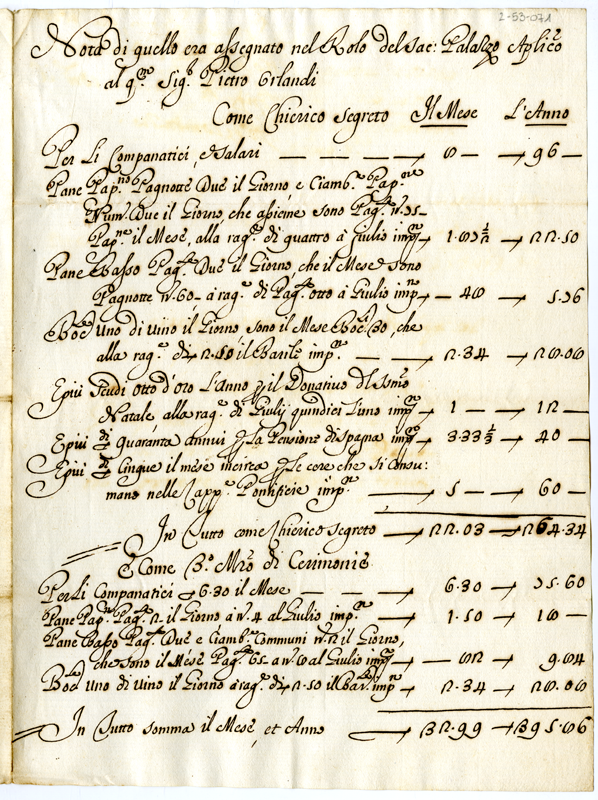 2-53-071
Nota di quello era assegnato nel Rolo del Sac: Palazzo Aplico
al qm. Sig. Pietro Orlandi
Come Chierico segreto Il Mese L'Anno
Per Li Companatici, e salari — 8 — 96 —
Pane Pap.no Pagnotte Due il Giorno e Ciamb.e Pap.ne
Num. Due il Giorno che assieme sono Pag.te n. 75
Pap.ne il Mese, alla rag.e di quattro à Giulio imp.no 1.87½ 22.50
Pane Basso Pag.te Due il Giorno, che il Mese sono
Pagnotte n. 60 - à rag.e di Pag.te otto à Giulio imp.no — 48 5.76
Boc.e Uno di vino il Giorno sono il Mese Boc.li 30, che
alla rag.e di 2.50 il Barile imp.no — 2.34 28.08
Epiu Scudi otto d'oro L'Anno p il Donativo del
Natale alla rag.e di Giulij quindici l'uno imp.no 1 — 12 —
Epiu di quaranta annui p La Pensione di spagna imp.no 3.33⅓ 40 —
Epiu Cinque il mese incirca p Le cere che si consu:
mano nelle Capp.e Pontificie imp.no 5 — 60 —
In Tutto come Chierico segreto 22.03 264.34
E Come 3.o Mro di Cerimonie
Per Li Companatici 6.30 il Mese — 6.30 75.60
Pane Pap.no Pag.te 2 il Giorno à n. 4 al Giulio imp.no 1.50 18 —
Pane Basso Pag.te Due e Ciamb.e Communi n. 2 il Giorno,
che sono il Mese Pag.te 65 a n. 8 al Giulio imp.no — 82 9.84
Boc.le Uno di vino il Giorno à rag.e di 2.50 il Bar.le imp.no 2.34 28.08
In Tutto somma il Mese, et Anno 32.99 395.86